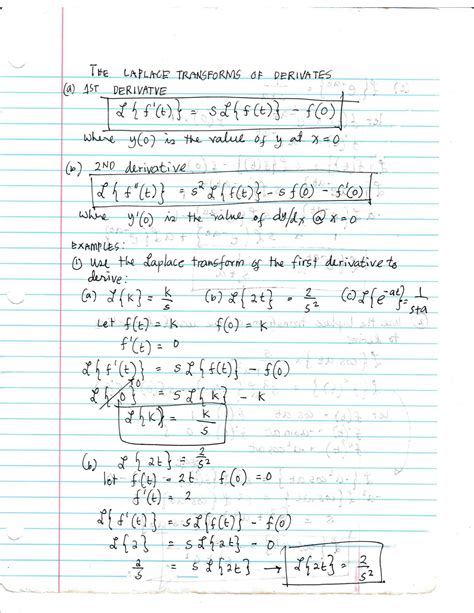 THE LAPLACE TRANSFORMS OF DERIVATES
(a) 1ST DERIVATVE
ℒ{f'(t)} = sℒ{f(t)} - f(0)
where y(0) is the value of y at x=0
(b) 2ND derivative
ℒ{f"(t)} = s² ℒ{f(t)} - s f(0) - f'(0)
where y'(0) is the value of dy/dx @ x=0
EXAMPLES:
① Use the Laplace transform of the first derivative to
derive:
(a) ℒ{k} = k/s (b) ℒ{2t} = 2/s² (c) ℒ{e^-at} = 1/s+a
Let f(t) = k f(0) = k
f'(t) = 0
ℒ{f'(t)} = sℒ{f(t)} - f(0)
ℒ{0}⁰ = sℒ{k} - k
ℒ{k} = k/s
(b) ℒ{2t} = 2/s²
let f(t) = 2t f(0) = 0
f'(t) = 2
ℒ{f'(t)} = sℒ{f(t)} - f(0)
ℒ{2} = sℒ{2t} - 0
2/s = sℒ{2t} → ℒ{2t} = 2/s²